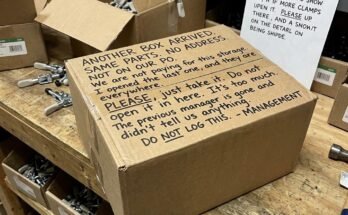 & IF MORE CLAMPS
IT PLEASE UP
THERE, AND A SNOW.IT
ON THE DETARL ON
BEING SHIPDE.
ANOTHER BOX ARRIVED.
SAME PARTS. NO ADDRESS.
NOT ON OUR PO.
We are not paying for this storage.
I opened the last one, and they are
everywhere.
PLEASE, just take it. Do not
open it in here. It's too much.
The previous manager is gone and
didn't tell us anything.
DO NOT LOG THIS. - MANAGEMENT